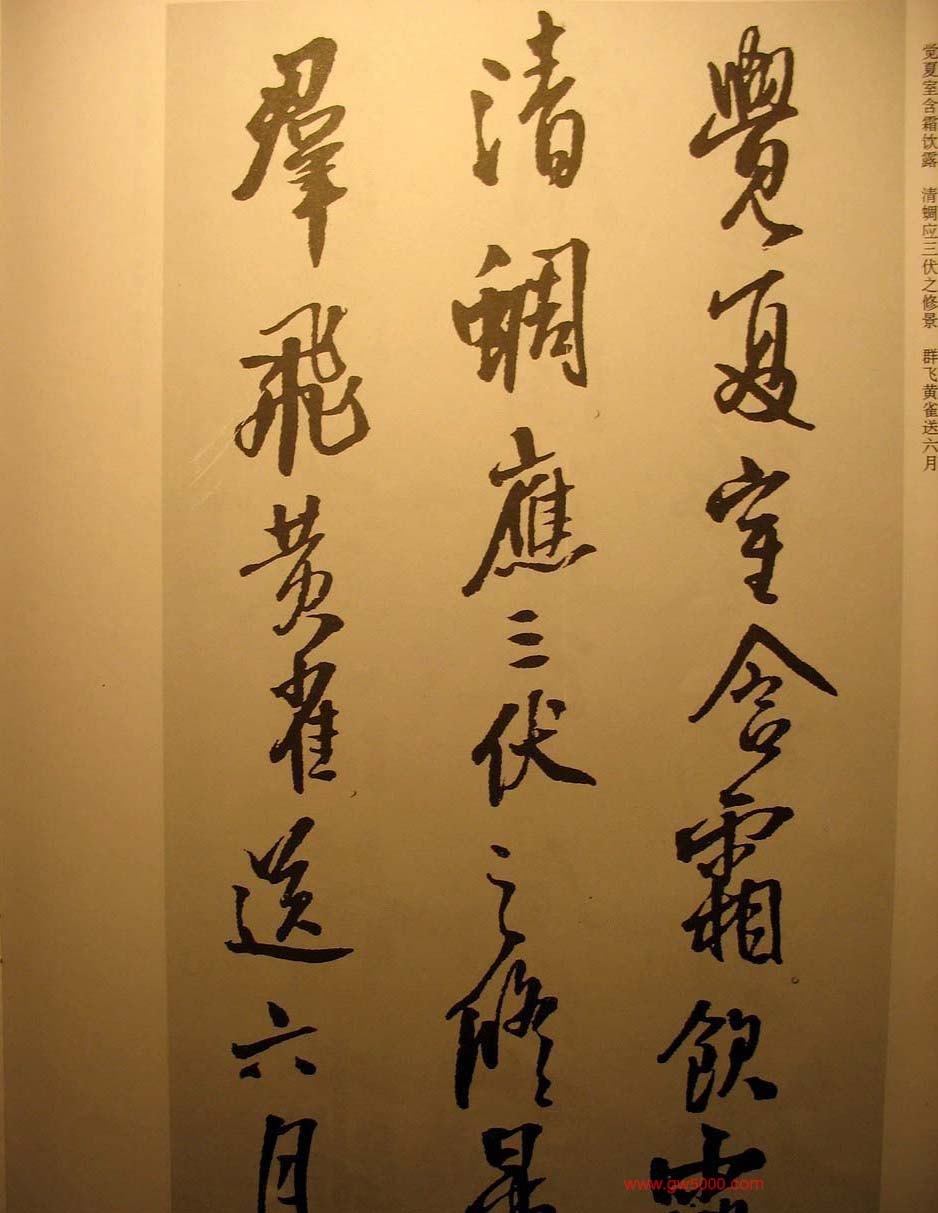 觉夏室含霜饮露 清蜩应三伏之修景 群飞黄雀送六月
覺夏室含霜飲露
清蜩應三伏之修景
羣飛黄雀送六月
www.gw5000.com